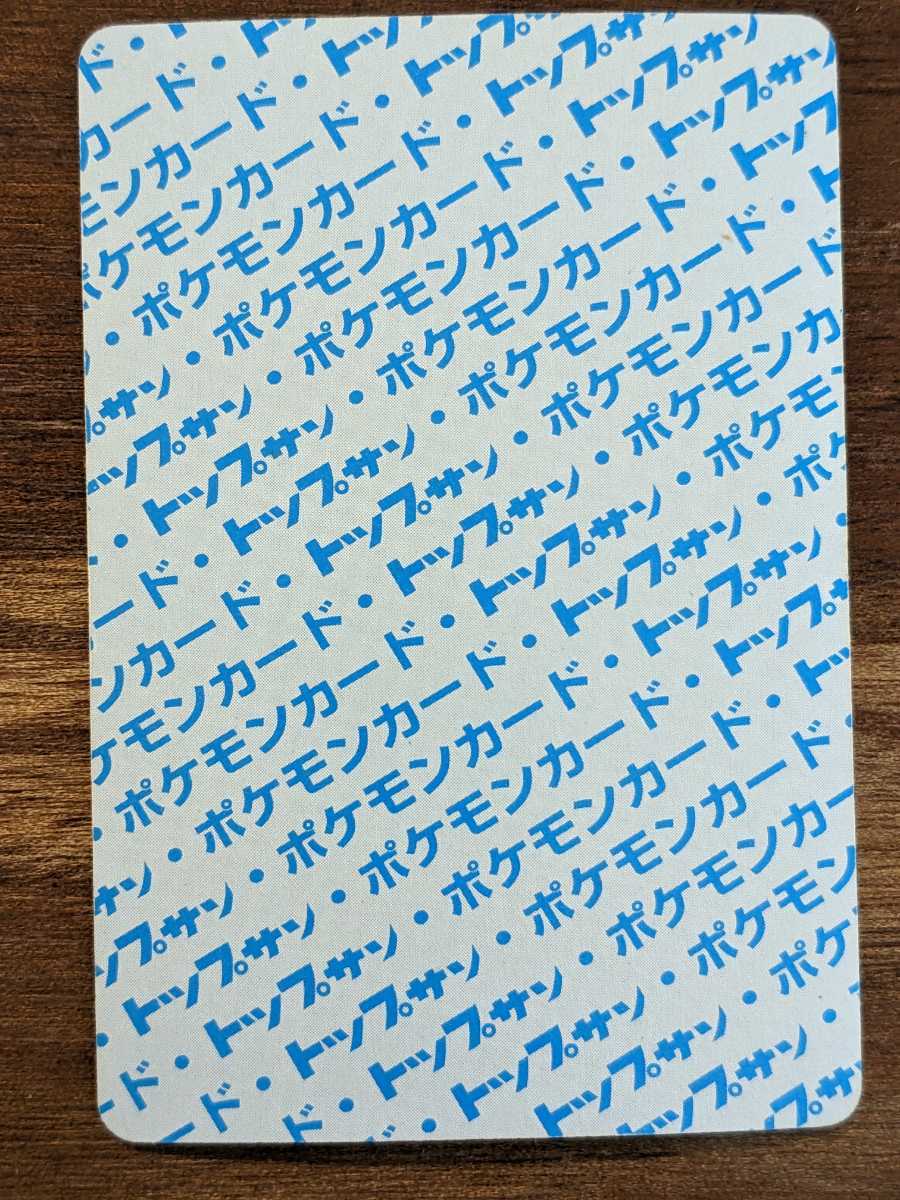 ド・ト
カード・トッ
モンカード・トップ
ポケモンカード・トップサ
・ポケモンカード・トップサン
プサン・ポケモンカード・トップサン
トップサン・ポケモンカード・トップサン
・トップサン・ポケモンカード・トップサ
ード・トップサン・ポケモンカード・ト
ンカード・トップサン・ポケモンカード
ケモンカード・トップサン・ポケモンカ
・ポケモンカード・トップサン・ポケモン
サン・ポケモンカード・トップサン・ポケ
ップサン・ポケモンカード・トップサン・
・トップサン・ポケモンカード・トップサ
ド・トップサン・ポケモンカード・トッ
ード・トップサン・ポケモンカード・
ド・トップサン・ポケモンカー
・トップサン・ポケモン
トップサン・ポケ
ップサン・
プサ